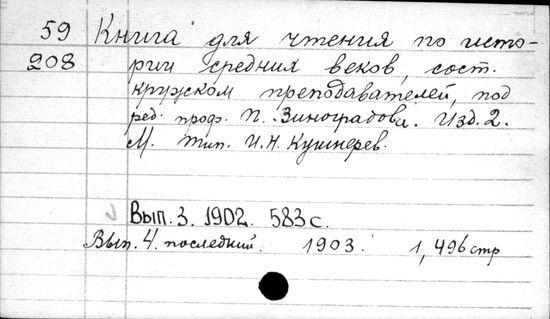 59 Книга для чтения по исто-
208 рии средних веков, сост.
кружском преподавателей, под
ред. проф. П. Виноградова. Изд. 2.
М. Тип. И.Н. Кушнерев.
Вып. 3. 1902. 583 с.
Вып. 4. последний. 1903. 1, 496 стр